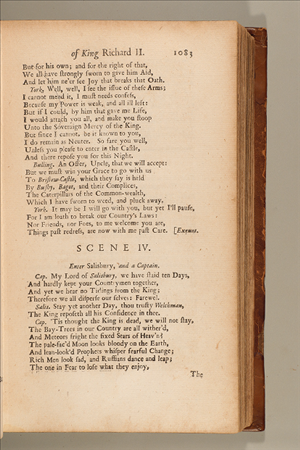 of King Richard II. 1083
But for his own; and for the right of that,
We all have strongly sworn to give him Aid,
And let him ne'er see Joy that breaks that Oath.
York. Well, well, I see the issue of these Arms;
I cannot mend it, I must needs confess,
Because my Power is weak, and all ill left:
But if I could, by him that gave me Life,
I would attach you all, and make you stoop
Unto the Soveraign Mercy of the King.
But since I cannot, be it known to you,
I do remain as Neuter. So fare you well,
Unless you please to enter in the Castle,
And there repose you for this Night.
Bulling. An Offer, Uncle, that we will accept:
But we must win your Grace to go with us
To Bristow-Castle, which they say is held
By Bushy, Bagot, and their Complices,
The Caterpillars of the Common-wealth,
Which I have sworn to weed, and pluck away.
York. It may be I will go with you, but yet I'll pause,
For I am loath to break our Country's Laws:
Nor Friends, nor Foes, to me welcome you are,
Things past redress, are now with me past Care. [Exeunt.
SCENE IV.
Enter Salisbury, and a Captain.
Cap. My Lord of Salisbury, we have staid ten Days,
And hardly kept your Countrymen together,
And yet we hear no Tidings from the King;
Therefore we all disperse our selves: Farewel.
Salis. Stay yet another Day, thou trusty Welchman,
The King reposeth all his Confidence in thee.
Cap. 'Tis thought the King is dead, we will not stay,
The Bay-Trees in our Country are all wither'd,
And Meteors fright the fixed Stars of Heav'n;
The pale-fac'd Moon looks bloody on the Earth,
And lean-look'd Prophets whisper fearful Change;
Rich Men look sad, and Ruffians dance and leap;
The one in Fear to lose what they enjoy,
The